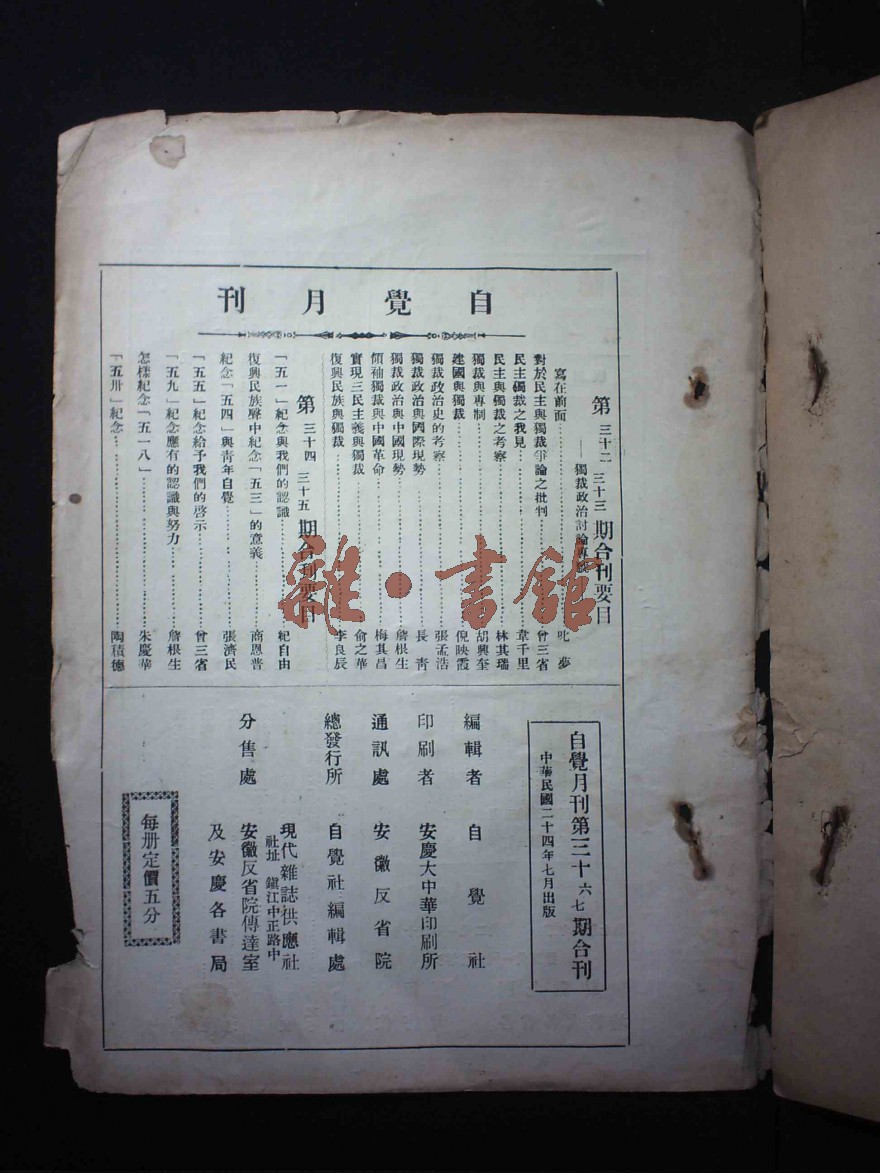 自覺月刊
第三十二 三十三期合刊要目
——獨裁政治討論專號
寫在前面……叱夢
對於民主與獨裁爭論之批判……曾三省
民主獨裁之我見……韋千里
民主與獨裁之考察……林其瑞
獨裁與專制……胡興奎
建國與獨裁……倪映霞
獨裁政治史的考察……張孟浩
獨裁政治與國際現勢……長青
獨裁政治與中國現勢……詹根生
領袖獨裁與中國革命……梅其昌
實現三民主義與獨裁……俞之華
復興民族與獨裁……李良辰
第三十四 三十五期合刊要目
「五一」紀念與我們的認識……紀自由
復興民族聲中紀念「五三」的意義……商恩普
紀念「五四」與青年自覺……張濟民
「五五」紀念給予我們的啓示……曾三省
「五九」紀念應有的認識與努力……詹根生
怎樣紀念「五一八」……朱慶華
「五卅」紀念……陶積德
自覺月刊第三十六七期合刊
中華民國二十四年七月出版
編輯者 自覺社
印刷者 安慶大中華印刷所
通訊處 安徽反省院
總發行所 自覺社編輯處
分售處 現代雜誌供應社
社址 鎮江中正路中
安徽反省院傳達室
及安慶各書局
每册定價五分
雜·書館